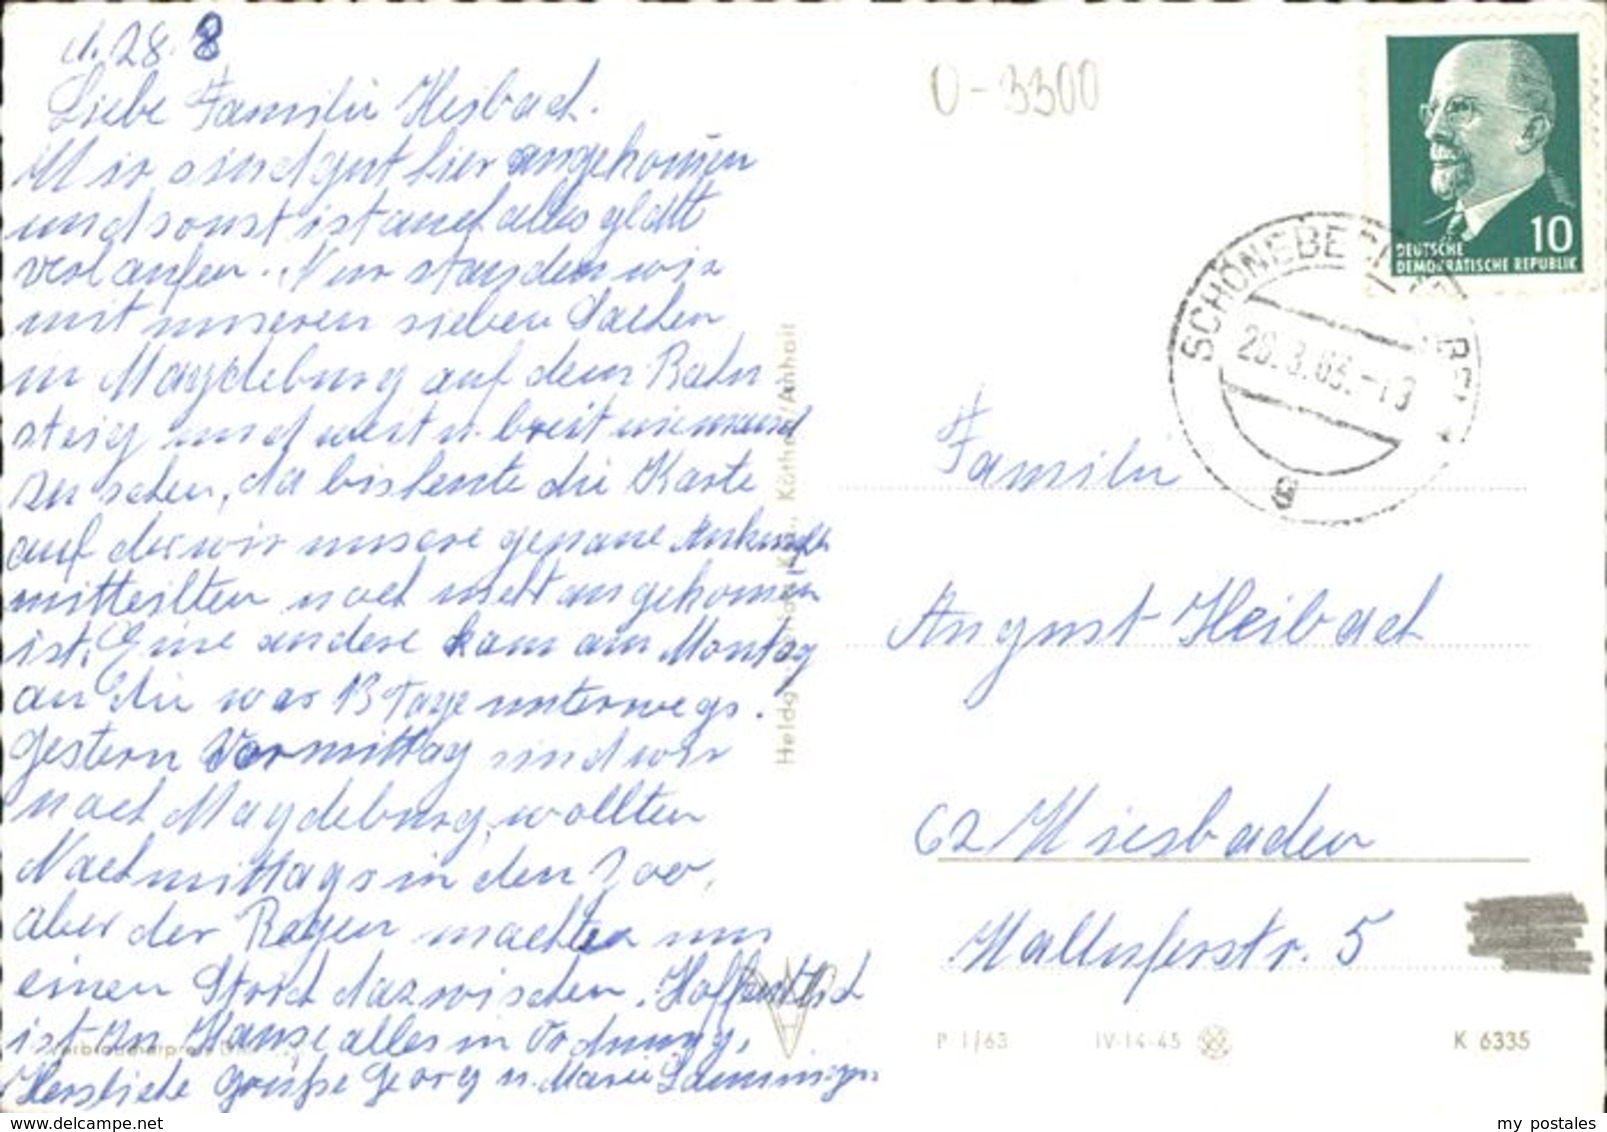 d. 28. 8
Liebe Familie Heibach.
Wir sind gut hier angekommen
und sonst ist auch alles glatt
verlaufen. Nur standen wir
mit unseren sieben Sachen
in Magdeburg auf dem Bahn
steig und weit u. breit niemand
zu sehen, da bis heute die Karte
auf der wir unsere genaue Ankunft
mitteilten noch nicht angekommen
ist. Eine andere kam am Montag
an die war 13 Tage unterwegs.
Gestern Vormittag sind wir
nach Magdeburg, wollten
Nachmittags in den Zoo,
aber der Regen machte uns
einen Strich dazwischen. Hoffentlich
ist zu Hause alles in Ordnung.
Herzliche Grüße Georg u. Marie
U-3300
10
DEUTSCHE
DEMOKRATISCHE REPUBLIK
SCHÖNEBECK
28.8.63.-18
Familie
August Heibach
62 Wiesbaden
Walluferstr. 5
Köthen/Anhalt
P 1/63 IV-14-45 K 6335
my postales